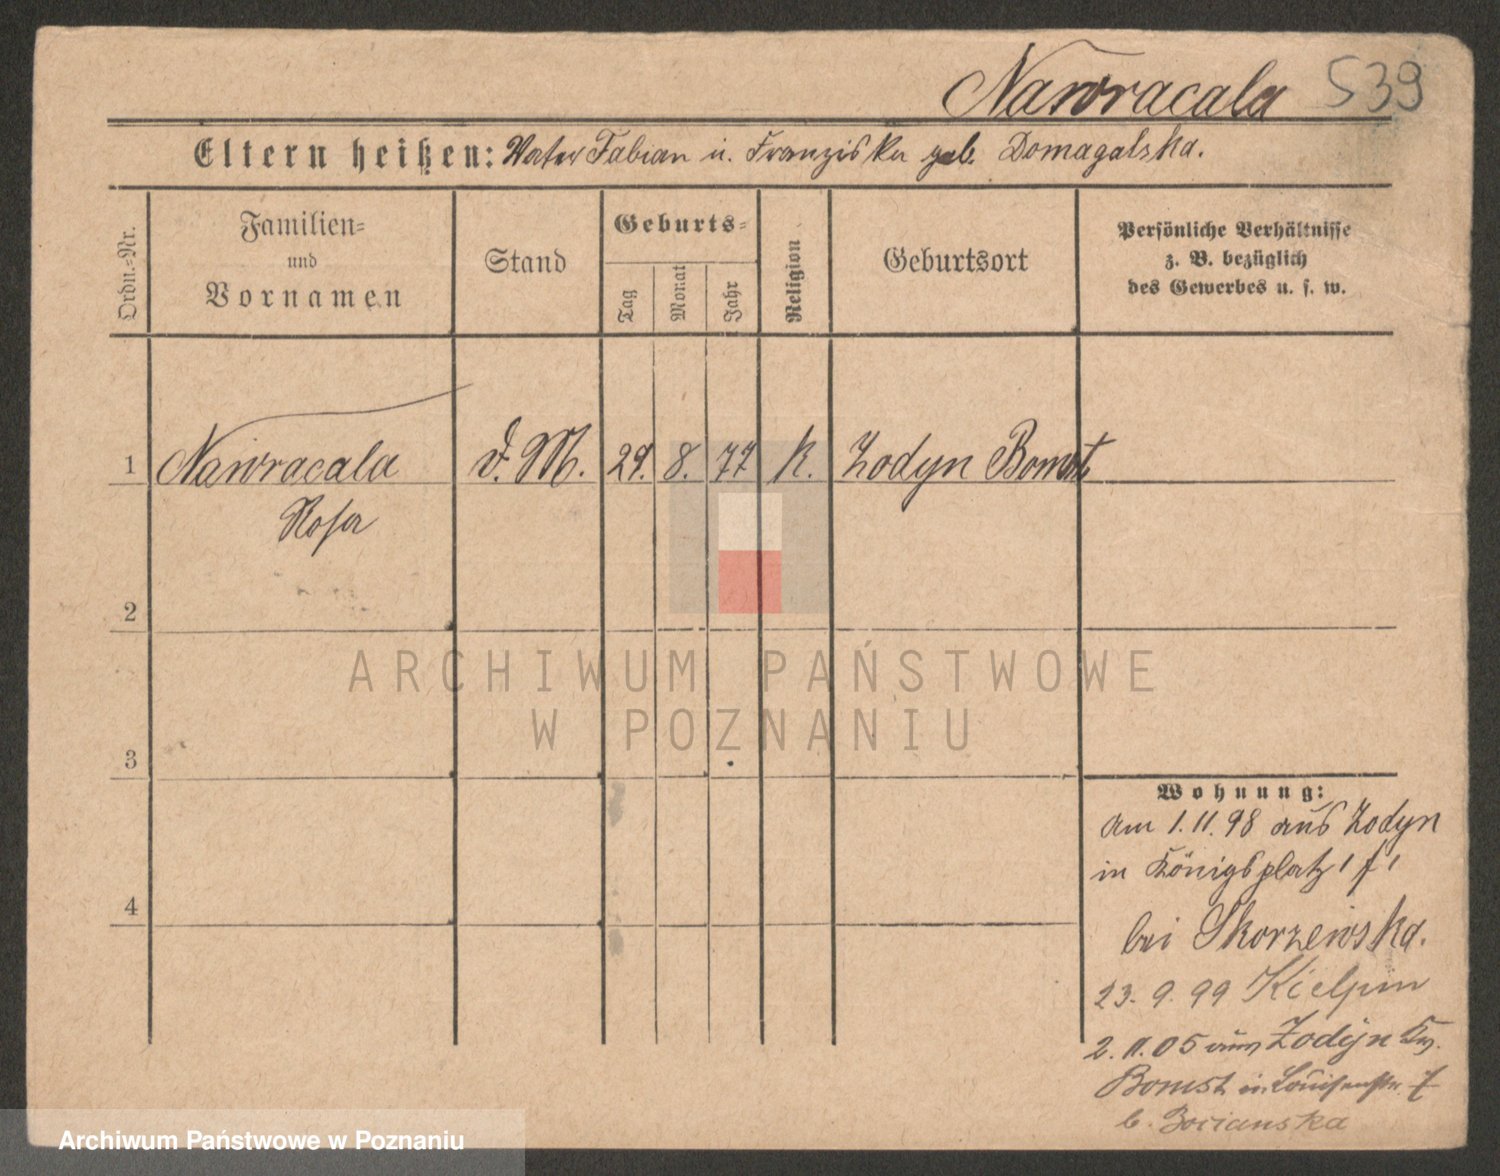 Nawracala 539
Eltern heißen: Vater Fabian u. Franziska geb. Domagalska.
Ordn.-Nr.
Familien-
und
Vornamen
Stand
Geburts-
Tag
Monat
Jahr
Religion
Geburtsort
Persönliche Verhältnisse
z. B. bezüglich
des Gewerbes u. s. w.
1 Nawracala d. M. 29. 8. 77 K. Zodyn Bomst
Rosa
2
3
4
Wohnung:
am 1.11.98 aus Zodyn
in Königsplatz 1 f 1
bei Skorzewska.
23. 9. 99 Kielpin
2. 11. 05 aus Zodyn
Bomst in Louisenstr. 7
b.
ARCHIWUM PAŃSTWOWE
W POZNANIU
Archiwum Państwowe w Poznaniu